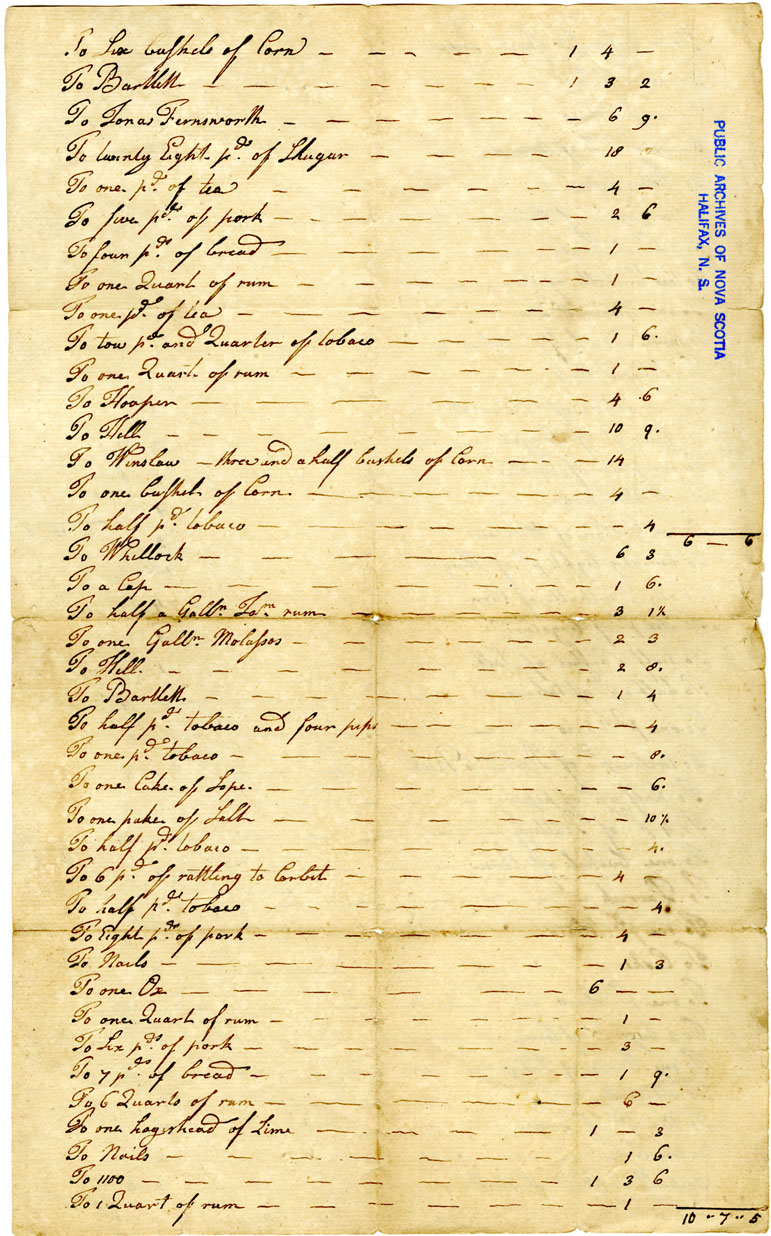 To Six bushels of Corn — — — — — — 1 4 —
To Bartlett — — — — — — — — 1 3 2
To Jonas Fernsworth — — — — — — — 6 9.
To twenty Eight pds. of Shugar — — — — — 18
To one pd. of tea — — — — — — — 4 —
To five pds. of pork — — — — — — — 2 6
To four pds. of bread — — — — — — — 1 —
To one Quart of rum — — — — — — — 1 —
To one pd. of tea — — — — — — — 4 —
To tow pds. and Quarter of tobaco — — — — — 1 6.
To one Quart of rum — — — — — — — 1 —
To Hooper — — — — — — — 4 6
To Hill — — — — — — — 10 9.
To Winslaw — three and a half bushels of Corn — — — 14
To one bushel of Corn — — — — — — — 4 —
To half pd. tobaco — — — — — — — 4
6 — 6
To Whillock — — — — — — — 6 3
To a Cap — — — — — — — 1 6.
To half a Galln. Jam rum — — — — — — 3 1½
To one Galln. Molasses — — — — — — 2 3
To Hill — — — — — — — 2 8.
To Bartlett — — — — — — — 1 4
To half pd. tobaco and four pips — — — — — 4
To one pd. tobaco — — — — — — — 8.
To one Cake of Sope — — — — — — — 6.
To one pake of Salt — — — — — — — 10½
To half pd. tobaco — — — — — — — 4.
To 6 pd. of rattling to Corbit — — — — — 4 —
To half pd. tobaco — — — — — — — 4
To Eight pds. of pork — — — — — — — 4 —
To Nails — — — — — — — 1 3
To one Ox — — — — — — — 6 — —
To one Quart of rum — — — — — — — 1 —
To Six pds. of pork — — — — — — — 3 —
To 7 pd. of bread — — — — — — — 1 9.
To 6 Quarts of rum — — — — — — — 6 —
To one hagerhead of Lime — — — — — 1 — 3
To Nails — — — — — — — 1 6.
To 1100 — — — — — — — 1 3 6
To 1 Quart of rum — — — — — — — 1 —
10 " 7 " 5
PUBLIC ARCHIVES OF NOVA SCOTIA
HALIFAX, N. S.